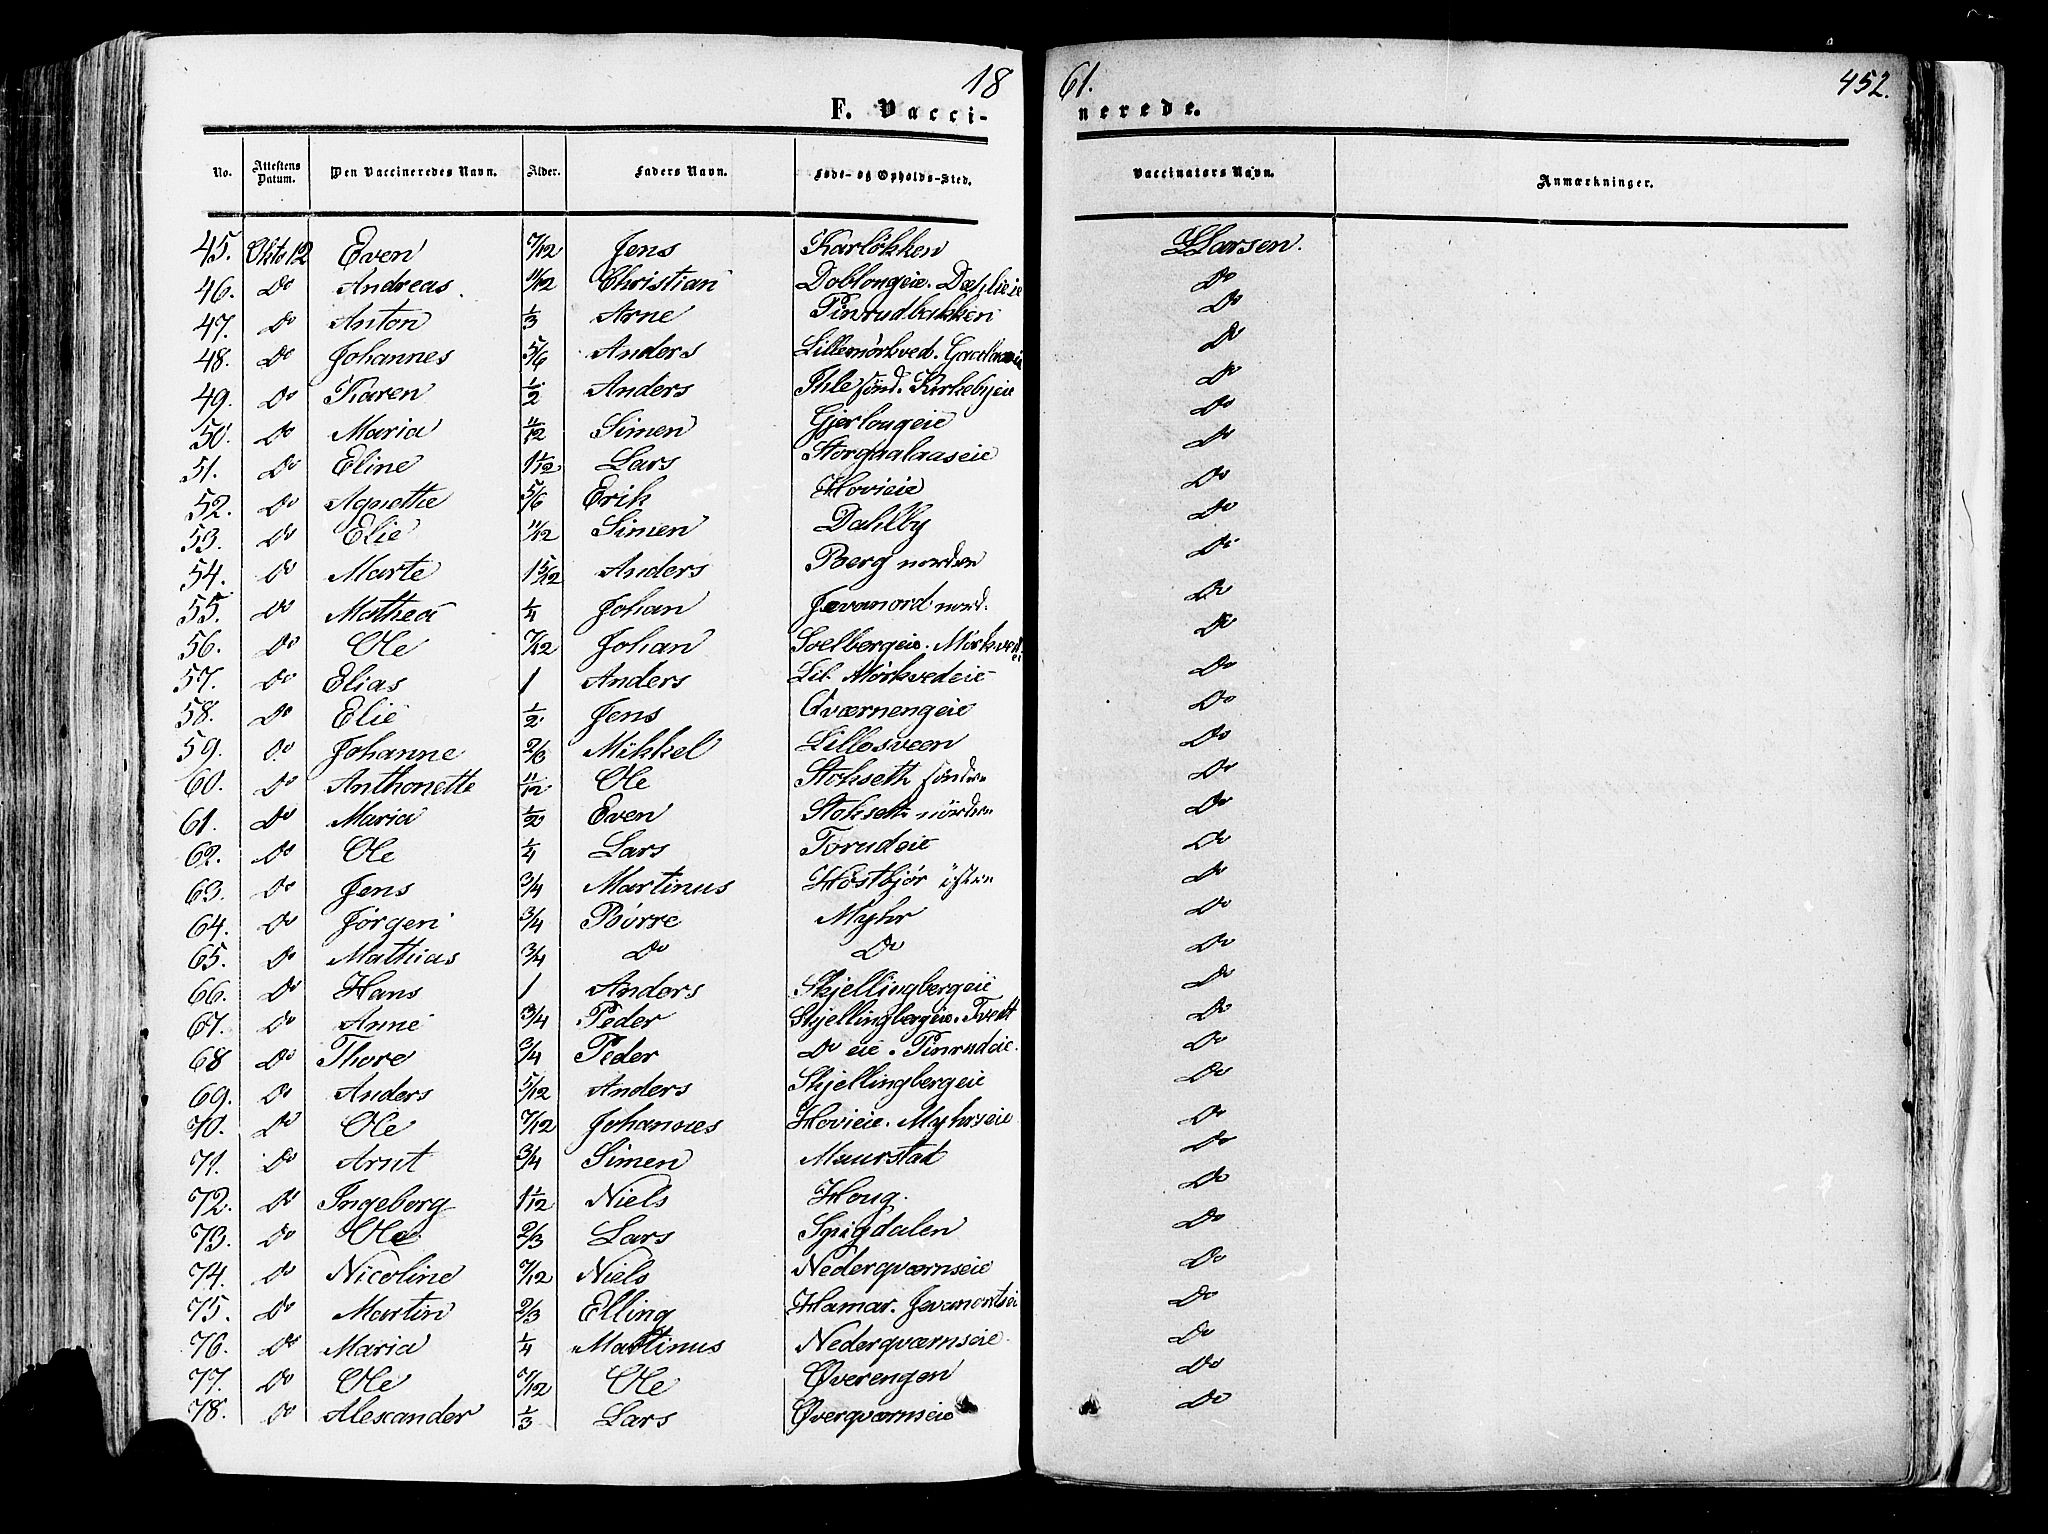 18 61. 452.
F. Vacci- nerede.
No. Attestens Datum. Den Vaccineredes Navn. Alder. Faders Navn. Føde- og Opholds-Sted. Vaccinators Navn. Anmærkninger.
45. Okto 12 Even 7/12 Jens Karlökken Larsen.
46. Do Andreas 11/12 Christian Doblougeie. Do
47. Do Anton 1/3 Arne Pinrudbakken Do
48. Do Johannes 5/6 Anders Lillemörkved. Do
49. Do Karen 1/2 Anders Ihle sönd. Kirkebyeie Do
50. Do Maria 11/12 Simen Gjerlougeie Do
51. Do Eline 1 1/12 Lars Do
52. Do Agnethe 5/6 Erik Hovieie Do
53. Do Elie 11/12 Simen Dahlby Do
54. Do Marte 1 5/12 Anders Berg nordre Do
55. Do Mathea 1/4 Johan Jevanord nord. Do
56. Do Ole 7/12 Johan Soelbergeie. Mörkved Do
57. Do Elias 1 Anders Lil. Mørkvedeie Do
58. Do Elie 1/2 Jens Qværnengeie Do
59. Do Johanne 2/3 Mikkel Lillesveen Do
60. Do Anthonette 11/12 Ole Stokseth söndre Do
61. Do Maria 1/2 Even Stokseth nördre Do
62. Do Ole 1/4 Lars Torudeie Do
63. Do Jens 3/4 Martinus Höstbjör östre Do
64. Do Jörgen 3/4 Börre Myhr Do
65. Do Mathias 3/4 Do Do Do
66. Do Hans 1 Anders Skjellingbergeie Do
67. Do Anne 3/4 Peder Skjellingbergeie. Tvett Do
68 Do Thore 3/4 Peder Do eie. Pinrudeie. Do
69. Do Anders 5/12 Anders Skjellingbergeie Do
70. Do Ole 7/12 Johannes Hovieie. Myhrseie Do
71. Do Arnt 3/4 Simen Maurstad Do
72. Do Ingeborg 1 1/12 Niels Houg. Do
73. Do Ole 2/3 Lars Spigdalen Do
74. Do Nicoline 7/12 Niels Nederqværnseie Do
75. Do Martin 2/3 Elling Hamar. Do
76. Do Maria 1/4 Martinus Nederqværnseie Do
77. Do Ole 7/12 Ole Øverengen Do
78. Do Alexander 1/3 Lars Øverqværnseie Do